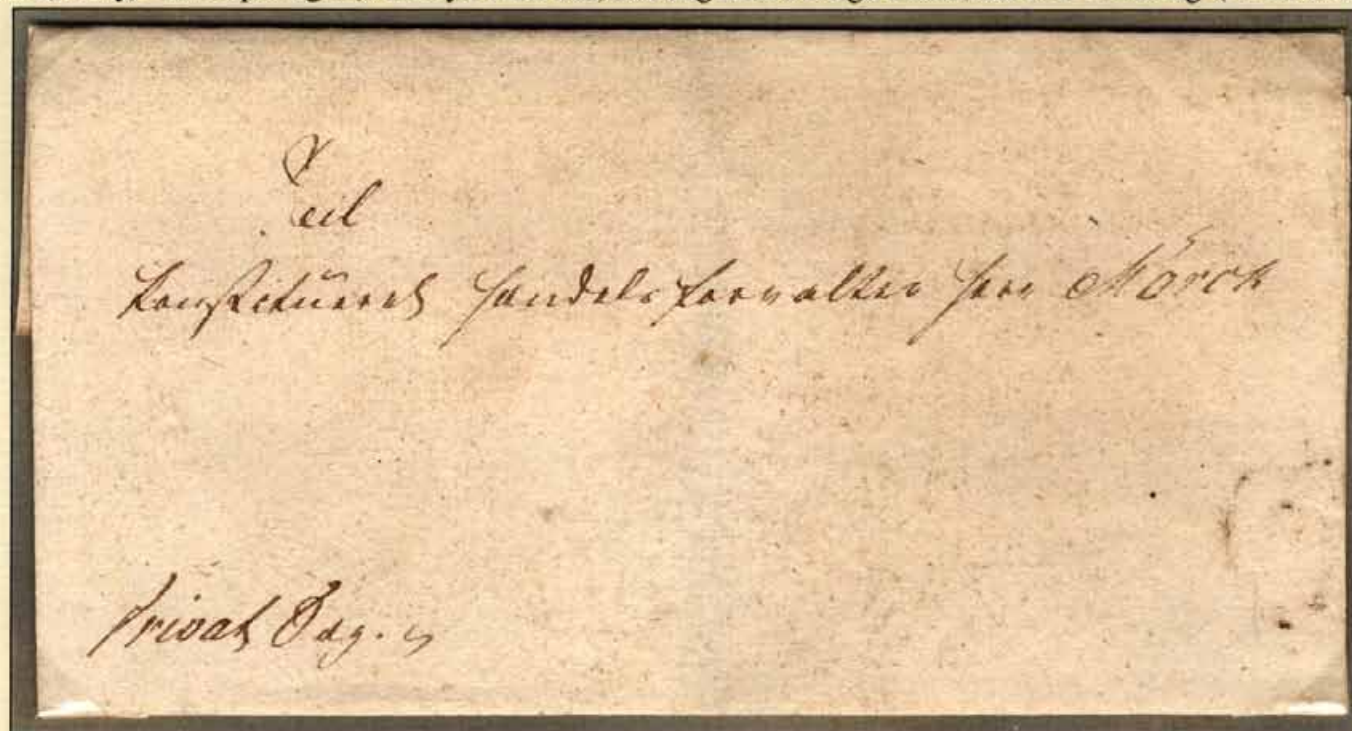 Til
konstitueret Handelsforvalter Herr Mörch
Privat Sag.